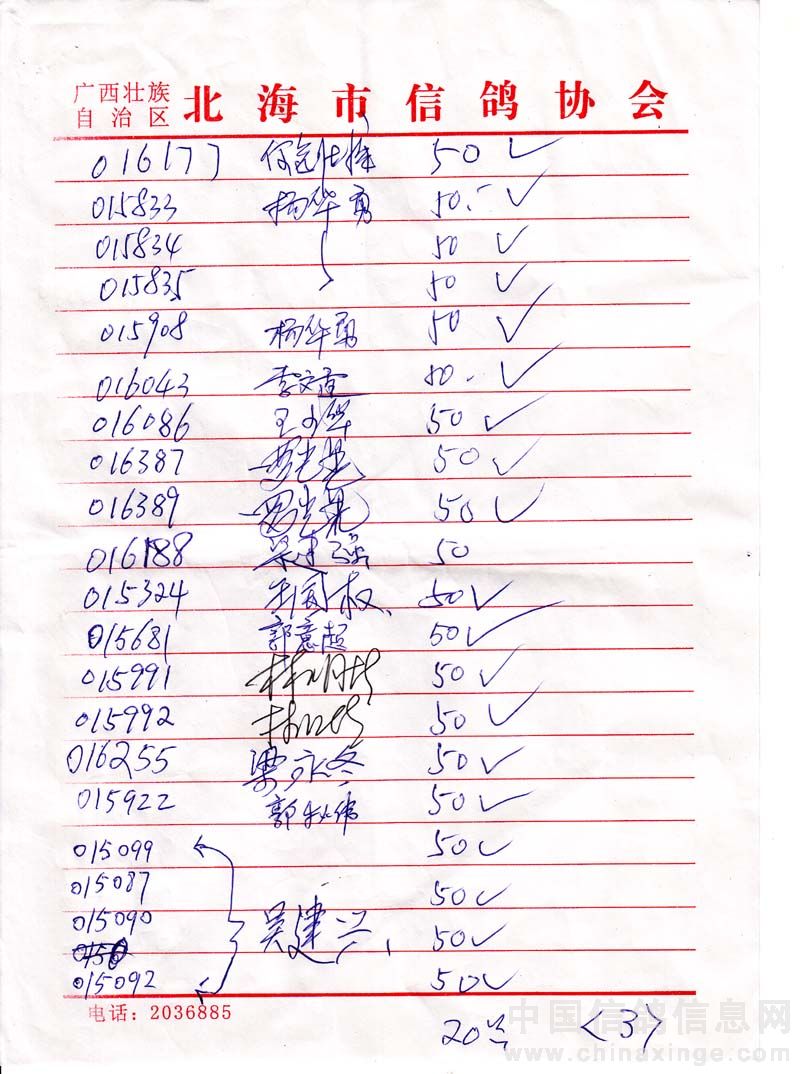 广西壮族
自治区 北海市信鸽协会
016177 50 ✓
015833 杨华勇 50.- ✓
015834 50 ✓
015835 50 ✓
015908 杨华勇 50 ✓
016043 50.- ✓
016086 王小华 50 ✓
016387 50 ✓
016389 50 ✓
016188 50
015324 权、 50 ✓
015681 郭意超 50 ✓
015991 50 ✓
015992 50 ✓
016255 梁永冬 50 ✓
015922 郭秋伟 50 ✓
015099 50 ✓
015087 50 ✓
015090 吴建兴、 50 ✓
015092 50 ✓
电话：2036885
20 <3>
中国信鸽信息网
www.chinaxinge.com